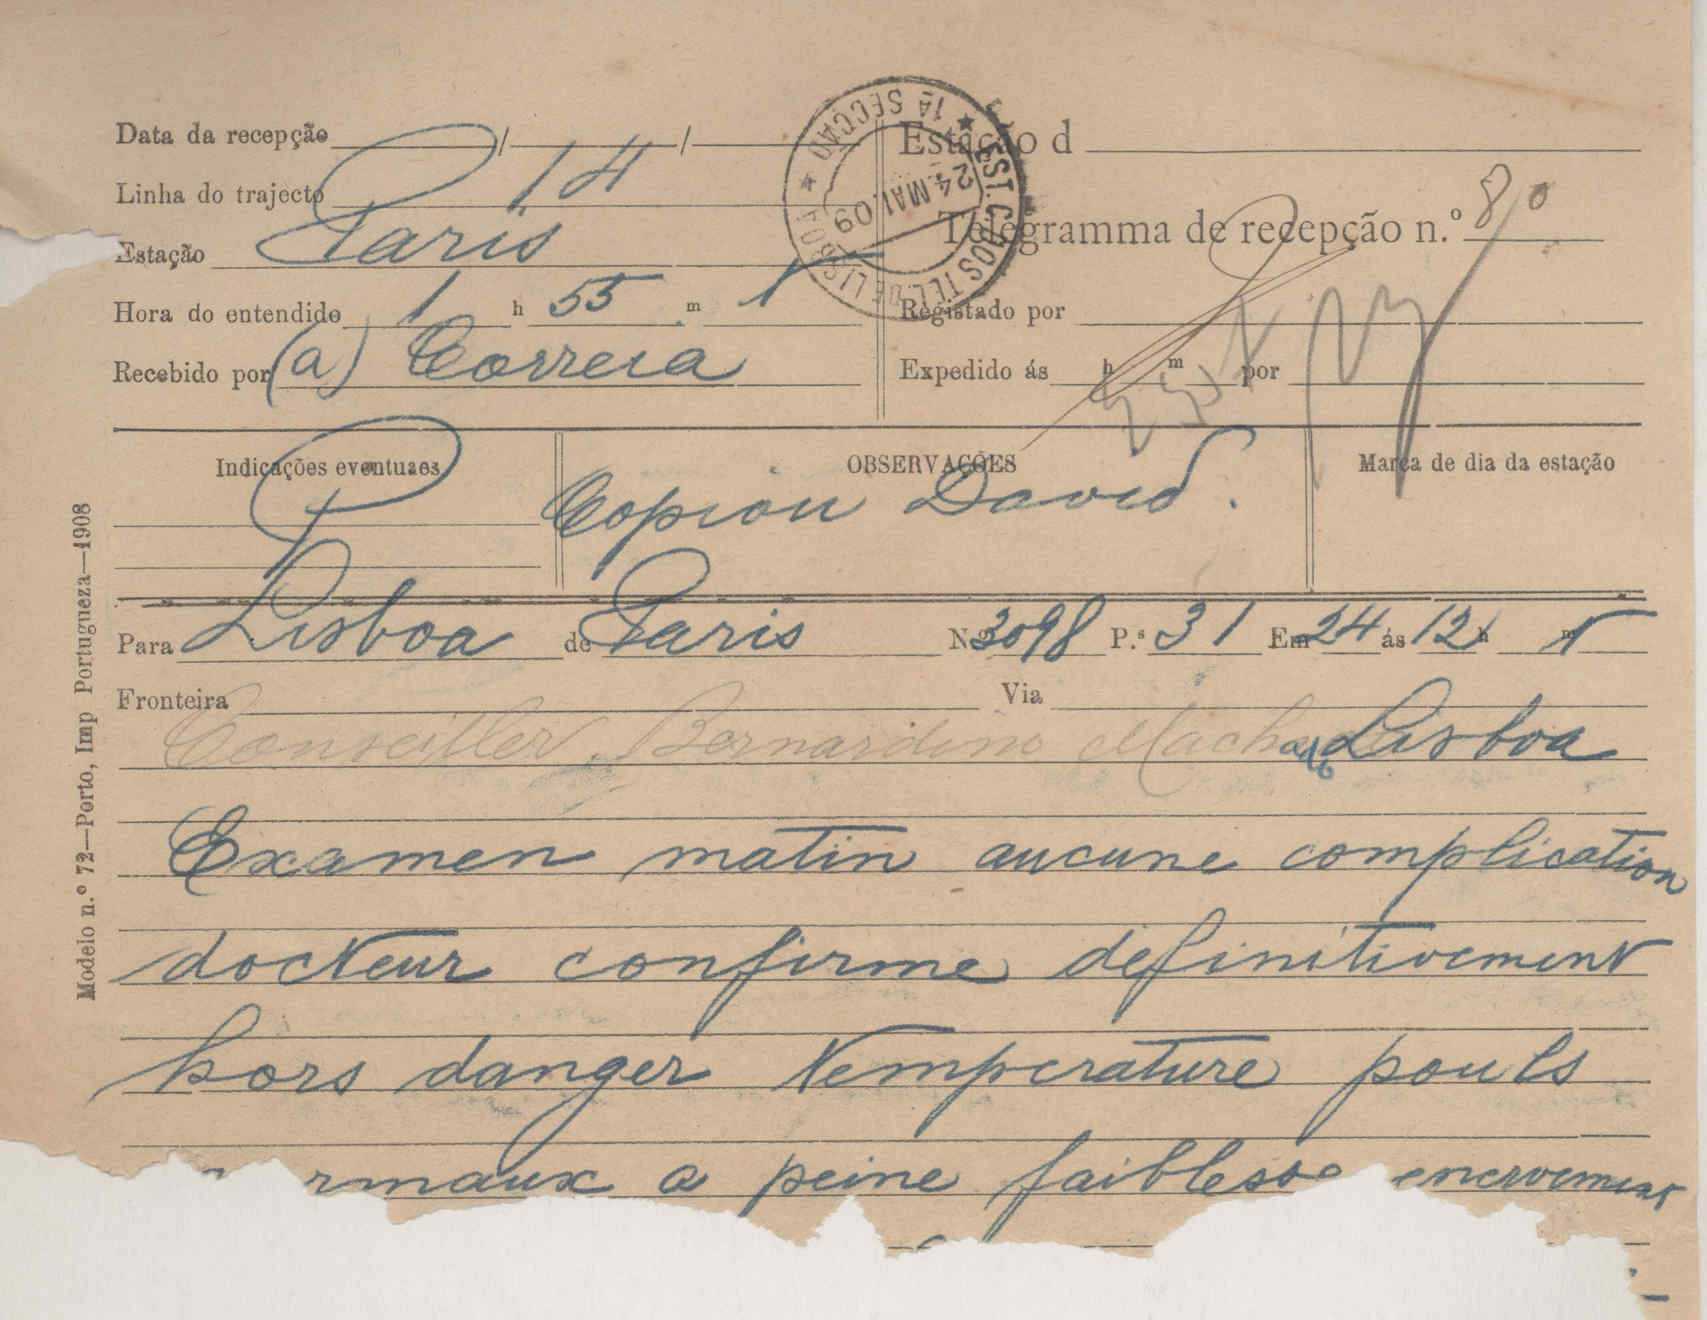 Data da recepção / /
Linha do trajecto 14
Estação Paris
Hora do entendido 1 h 55 m
Recebido por (a) Correia
Estação d
Telegramma de recepção n.º 80
Registado por
Expedido ás h m por
★ EST. C. DOS TEL. DE LISBOA ★ 1ª SECÇÃO
24 MAI. 09
Indicações eventuaes
OBSERVAÇÕES
Marca de dia da estação
Copiou David.
Para Lisboa de Paris N.º 3098 P.s 31 Em 24 ás 12 h m
Fronteira Via
Conseiller Bernardino Machado Lisboa
Examen matin aucune complication
docteur confirme definitivement
hors danger temperature pouls
rmaux a peine faiblesse enervement
Modelo n.º 72—Porto, Imp Portugueza—1908